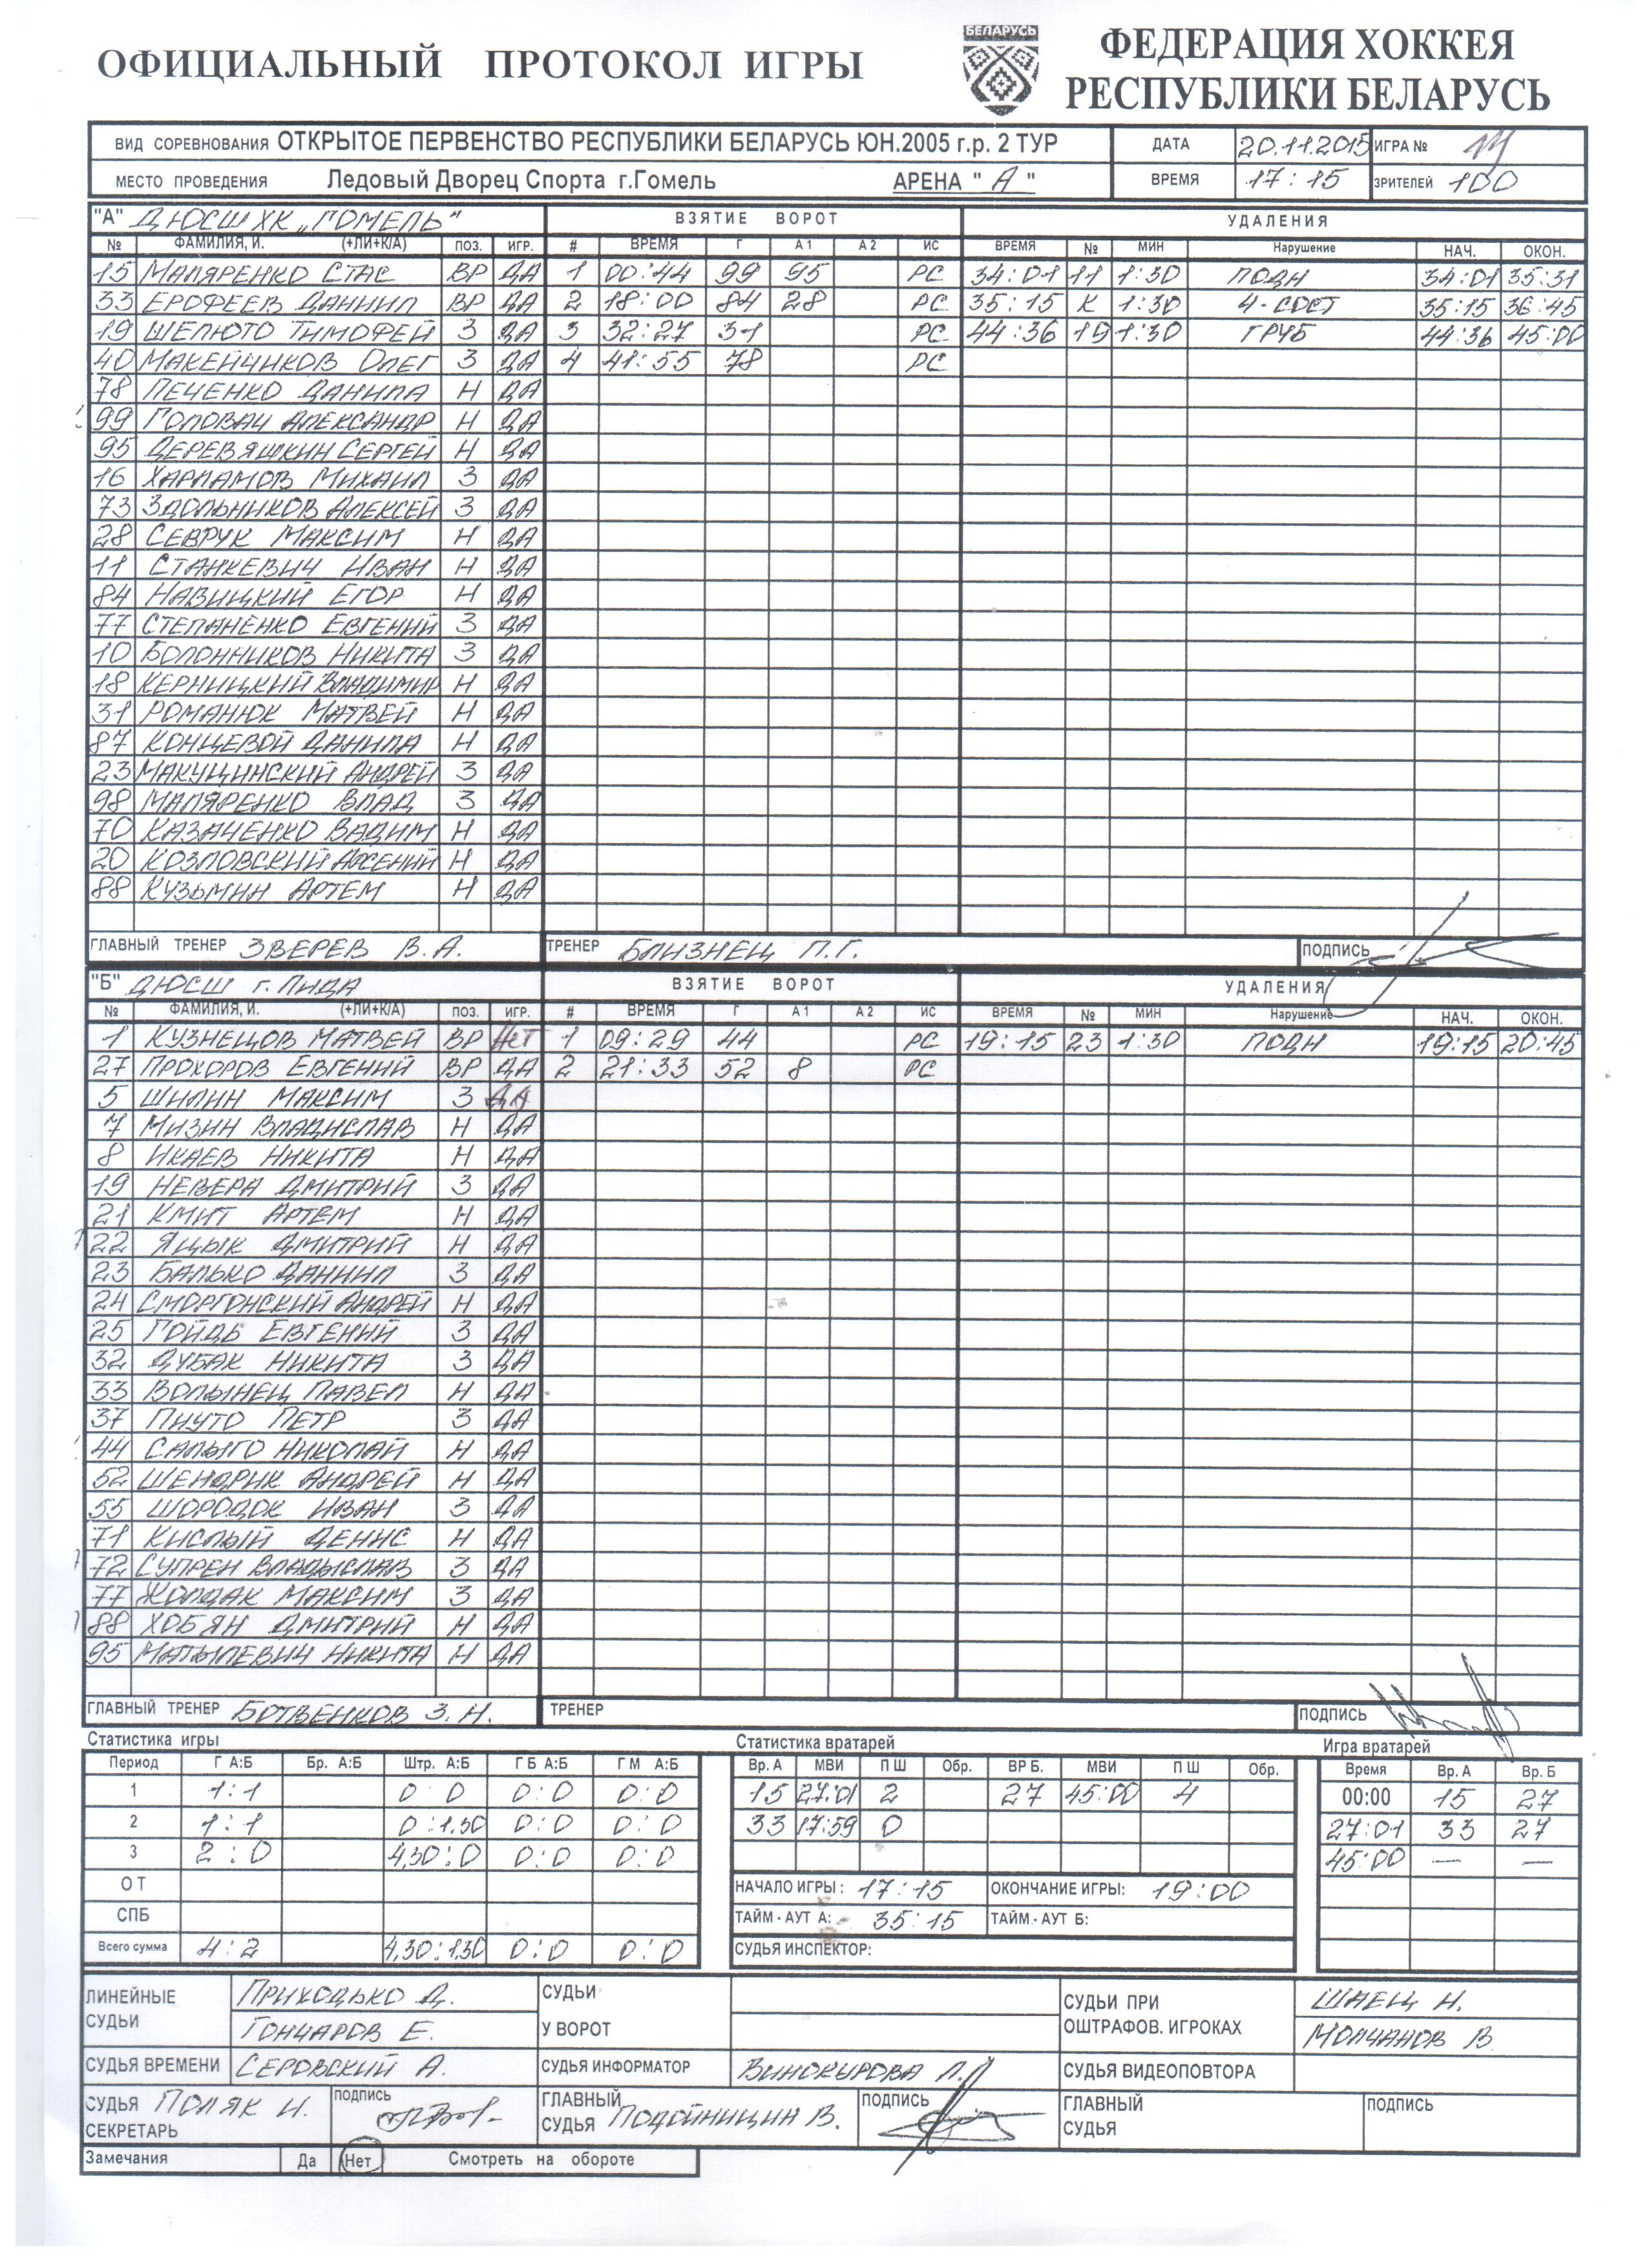 ОФИЦИАЛЬНЫЙ ПРОТОКОЛ ИГРЫ
БЕЛАРУСЬ
ФЕДЕРАЦИЯ ХОККЕЯ
РЕСПУБЛИКИ БЕЛАРУСЬ
ВИД СОРЕВНОВАНИЯ ОТКРЫТОЕ ПЕРВЕНСТВО РЕСПУБЛИКИ БЕЛАРУСЬ ЮН.2005 г.р. 2 ТУР ДАТА 20.11.2015 ИГРА №
МЕСТО ПРОВЕДЕНИЯ Ледовый Дворец Спорта г.Гомель АРЕНА " А " ВРЕМЯ 17:15 ЗРИТЕЛЕЙ 100
"А" ДЮСШ ХК „ГОМЕЛЬ" ВЗЯТИЕ ВОРОТ УДАЛЕНИЯ
№ ФАМИЛИЯ, И. (+ЛИ+К/А) ПОЗ. ИГР. # ВРЕМЯ Г А 1 А 2 ИС ВРЕМЯ № МИН Нарушение НАЧ. ОКОН.
15 МАЛЯРЕНКО СТАС ВР ДА 1 00:44 99 95 РС 34:01 11 1:30 ПОДН 34:01 35:31
33 ЕРОФЕЕВ ДАНИИЛ ВР ДА 2 18:00 84 28 РС 35:15 К 1:30 4-СОСТ 35:15 36:45
19 ШЕЛЮТО ТИМОФЕЙ З ДА 3 32:27 31 РС 44:36 19 1:30 ГРУБ 44:36 45:00
40 МАКЕЙЧИКОВ ОЛЕГ З ДА 4 41:55 78 РС
78 ПЕЧЕНКО ДАНИЛА Н ДА
99 ГОЛОВАЧ АЛЕКСАНДР Н ДА
95 ДЕРЕВЯШКИН СЕРГЕЙ Н ДА
16 ХАРЛАМОВ МИХАИЛ З ДА
73 ЗДОЛЬНИКОВ АЛЕКСЕЙ З ДА
28 СЕВРУК МАКСИМ Н ДА
11 СТАНКЕВИЧ ИВАН Н ДА
84 НАВИЦКИЙ ЕГОР Н ДА
77 СТЕПАНЕНКО ЕВГЕНИЙ З ДА
10 БОЛОННИКОВ НИКИТА З ДА
18 КЕРНИЦКИЙ ВЛАДИМИР Н ДА
31 РОМАНЮК МАТВЕЙ Н ДА
87 КОНЦЕВОЙ ДАНИЛА Н ДА
23 МАКУЦИНСКИЙ АНДРЕЙ З ДА
98 МАЛЯРЕНКО ВЛАД З ДА
70 КАЗАЧЕНКО ВАДИМ Н ДА
20 КОЗЛОВСКИЙ АРСЕНИЙ Н ДА
88 КУЗЬМИН АРТЕМ Н ДА
ГЛАВНЫЙ ТРЕНЕР ЗВЕРЕВ В.А. ТРЕНЕР БЛИЗНЕЦ П.Г. ПОДПИСЬ
"Б" ДЮСШ г. ЛИДА ВЗЯТИЕ ВОРОТ УДАЛЕНИЯ
№ ФАМИЛИЯ, И. (+ЛИ+К/А) ПОЗ. ИГР. # ВРЕМЯ Г А 1 А 2 ИС ВРЕМЯ № МИН Нарушение НАЧ. ОКОН.
1 КУЗНЕЦОВ МАТВЕЙ ВР НЕТ 1 09:29 44 РС 19:15 23 1:30 ПОДН 19:15 20:45
27 ПРОХОРОВ ЕВГЕНИЙ ВР ДА 2 21:33 52 8 РС
5 ШИЛИН МАКСИМ З ДА
7 МИЗИН ВЛАДИСЛАВ Н ДА
8 ИКАЕВ НИКИТА Н ДА
19 НЕВЕРА ДМИТРИЙ З ДА
21 КМИТ АРТЕМ Н ДА
22 ЯЦЫК ДМИТРИЙ Н ДА
23 БАЛЬКО ДАНИИЛ З ДА
24 СМОРГОНСКИЙ АНДРЕЙ Н ДА
25 ГОЙДЬ ЕВГЕНИЙ З ДА
32 ДУБАК НИКИТА З ДА
33 ВОЛЫНЕЦ ПАВЕЛ Н ДА
37 ПНУТО ПЕТР З ДА
44 САЛЫГО НИКОЛАЙ Н ДА
52 ШЕНДРИК АНДРЕЙ Н ДА
55 ШОРОДОК ИВАН З ДА
71 КИСЛЫЙ ДЕНИС Н ДА
72 СУПРЕН ВЛАДЫСЛАВ З ДА
77 ЖОЛДАК МАКСИМ З ДА
88 ХОБЯН ДМИТРИЙ Н ДА
95 МАТЫЛЕВИЧ НИКИТА Н ДА
ГЛАВНЫЙ ТРЕНЕР БОТВЕНКОВ З.Н. ТРЕНЕР ПОДПИСЬ
Статистика игры Статистика вратарей Игра вратарей
Период Г А:Б Бр. А:Б Штр. А:Б Г Б А:Б Г М А:Б Вр. А МВИ П Ш Обр. ВР Б. МВИ П Ш Обр. Время Вр. А Вр. Б
1 1:1 0 0 0:0 0:0 15 27:01 2 27 45:00 4 00:00 15 27
2 1:1 0:1.30 0:0 0:0 33 17:59 0 27:01 33 27
3 2:0 4.30:0 0:0 0:0 45:00 — —
О Т НАЧАЛО ИГРЫ: 17:15 ОКОНЧАНИЕ ИГРЫ: 19:00
СПБ ТАЙМ - АУТ А: 35:15 ТАЙМ.- АУТ Б:
Всего сумма 4:2 4.30:1.30 0:0 0:0 СУДЬЯ ИНСПЕКТОР:
ЛИНЕЙНЫЕ СУДЬИ ПРИХОДЬКО Д. СУДЬИ У ВОРОТ СУДЬИ ПРИ ОШТРАФОВ. ИГРОКАХ ШАЕЦ Н.
ГОНЧАРОВ Е. МОЛЧАНОВ В.
СУДЬЯ ВРЕМЕНИ СЕРОВСКИЙ А. СУДЬЯ ИНФОРМАТОР ВИНОКУРОВА Л. СУДЬЯ ВИДЕОПОВТОРА
СУДЬЯ СЕКРЕТАРЬ ПОЛЯК И. ПОДПИСЬ ГЛАВНЫЙ СУДЬЯ ПОДОЙНИЦИН В. ПОДПИСЬ ГЛАВНЫЙ СУДЬЯ ПОДПИСЬ
Замечания Да Нет Смотреть на обороте